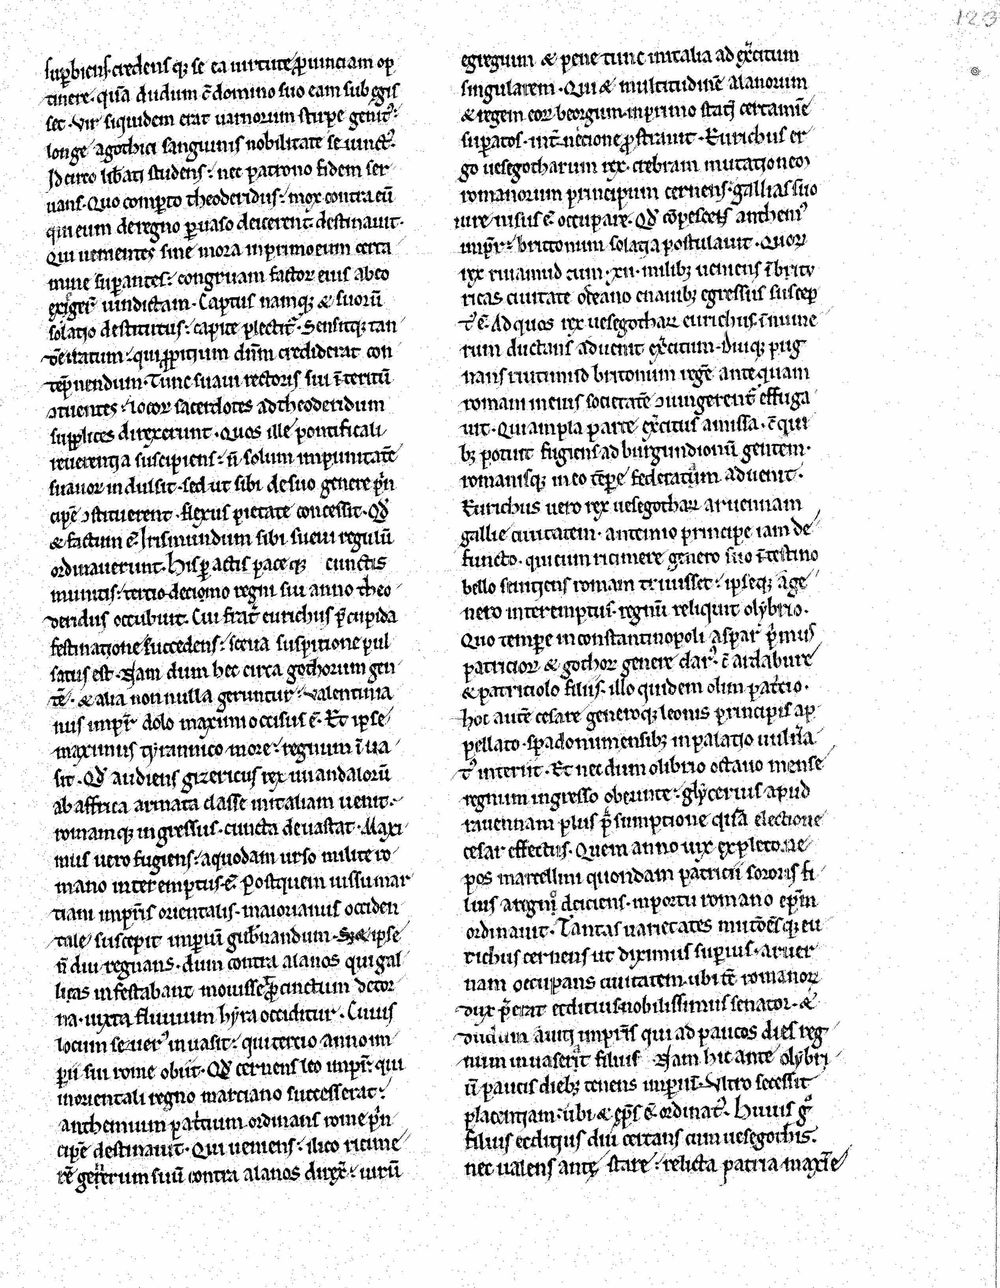 123
sup̄biens. credens q; se ea uirtute ꝓuinciam op
tinere. qua dudum c̄ domino suo eam sub egis
set. Vir siquidem erat uarnorum stirpe genit᷒.
longe agothici sanguinis nobilitate se iunct᷒.
Idcirco lib̄tati studens. nec patrono fidem ser
uans. Quo comperto theoderidus. mox contra eū
qui eum de regno ꝑuaso deicerent destinauit.
Qui uenientes sine mora in primo eum certa
mine sup̄antes. congruam factor eius ab eo
exiger̄t uindictam. Captus namq; & suorū
solatio destitutus. capite plectit᷑. Sensitq; tan
dē iratum. qui ꝓpitium dn̄m crediderat con
tēpnendum. Tunc suaui rectoris sui īteritū
ɔtuentes. locor̄ sacerdotes ad theoderidum
supplices direxerunt. Quos ille pontificali
reuerentia suscipiens. n̄ solum inpunitatē
suauor̄ indulsit. sed ut sibi de suo genere p̄n
cipē ɔstituerent. flexus pietate concessit. Qd̄
& factum ē. Irismundum sibi sueui regulū
ordinauerunt. His ꝑactis pace q; cunctis
munitis. tertio decimo regni sui anno theo
deridus occubuit. Cui frat̄ eurichus p̄cupida
festinatione succedens. seua suspitione pul
satus est. Nam dum hec circa gothorum gen
tē. & alia non nulla geruntur. Valentinia
nus imp̄r̄ dolo maximo occisus ē. Et ipse
maximus tyrannico more. regnum īua
sit. Qd̄ audiens gizericus rex uuandalorū
ab affrica armata classe in italiam uenit.
romamq; ingressus. cuncta deuastat. Maxi
mus uero fugiens. a quodam urso milite ro
mano interemptus. ē. Postquem iussu mar
tiani imp̄ris orientalis. maiorianus occiden
tale suscepit imp̄iū gub̄nandum. S; & ipse
n̄ diu regnans. dum contra alanos qui gal
licas infestabant mouisset ꝓcinctum detor
na. iuxta fluuium hyra occiditur. Cuius
locum seuer᷒ inuasit. qui tercio anno im
p̄ii sui rome obiit. Qd̄ cernens leo imp̄r. qui
in orientali regno marciano successerat.
anthemium patricium ordinans rome p̄n
cipē destinauit. Qui ueniens. ilico ricime
rē generum suū contra alanos direx̄. uirū
egregium & pene tunc in italia ad ex̄citum
singularem. Qui & multitudinē alanorum
& regem eor̄ beorgum in primo stati certamīe
sup̄atos. int̄necione ꝓstrauit. Eurichus er
go uesegotharum rex. crebram mutationem
romanorum principum cernens. gallias suo
iure nisus ē occupare. Qd̄ cōpescēs anthemi᷒
imp̄r. brittonum solatia postulauit. Quor̄
rex riuamud cum .xii. milib; ueniens ī brito
ricas ciuitate oceano e nauib; egressus suscep
t᷒ ē. Ad quos rex uesegothar̄ eurichus. ī nume
rum ductans aduenit ex̄citum. Diuq; pug
nans riutimud britonum regē antequam
romani in eius societatē ɔiungerent᷑ effuga
uit. Qui ampla parte ex̄citus amissa. c̄ qui
b; potuit fugiens ad burgundionū gentem.
romanisq; in eo tēp̄e federatam aduenit.
Eurichus uero rex uesegothar̄ aruernam
gallie ciuitatem. antemio principe iam de
functo. qui cum ricimere genero suo ītestino
bello seuiens romam triuisset. ipseq; a ge
nero interemptus. regnū reliquit olybrio.
Quo tempore in constantinopoli aspar p̄mus
patricior̄ & gothor̄ genere clar᷒. c̄ ardabure
& patriciolo filiis. illo quidem olim patricio.
hoc autē cesare generoq; leonis principis ap
pellato. spadonum ensib; in palatio uuln̄a
t᷒ interiit. Et necdum olibrio octauo mense
regnum ingresso obeunte. glycerius apud
rauennam plus p̄sumptione quā electione
cesar effectus. Quem anno uix expleto ne
pos marcellini quondam patricii sororis fi
lius a regno deiciens. in portu romano ep̄m
ordinauit. Tantas uarietates mutōēsq; eu
richus cernens ut diximus sup̄ius. aruer
nam occupans ciuitatem. ubi tc̄ romanor̄
dux p̄erat ecditius nobilissimus senator. &
dudum auiti imp̄ris qui ad paucos dies reg
num inuaserat filius Nam hic ante olybri
ū paucis dieb; tenens imp̄iū. Vltro secessit
placentiam. ubi & ep̄s ē ordinat᷒. Huius gͦ
filius ecditius diu certans cum uesegothis.
nec ualens ante stare. relicta patria maxīe